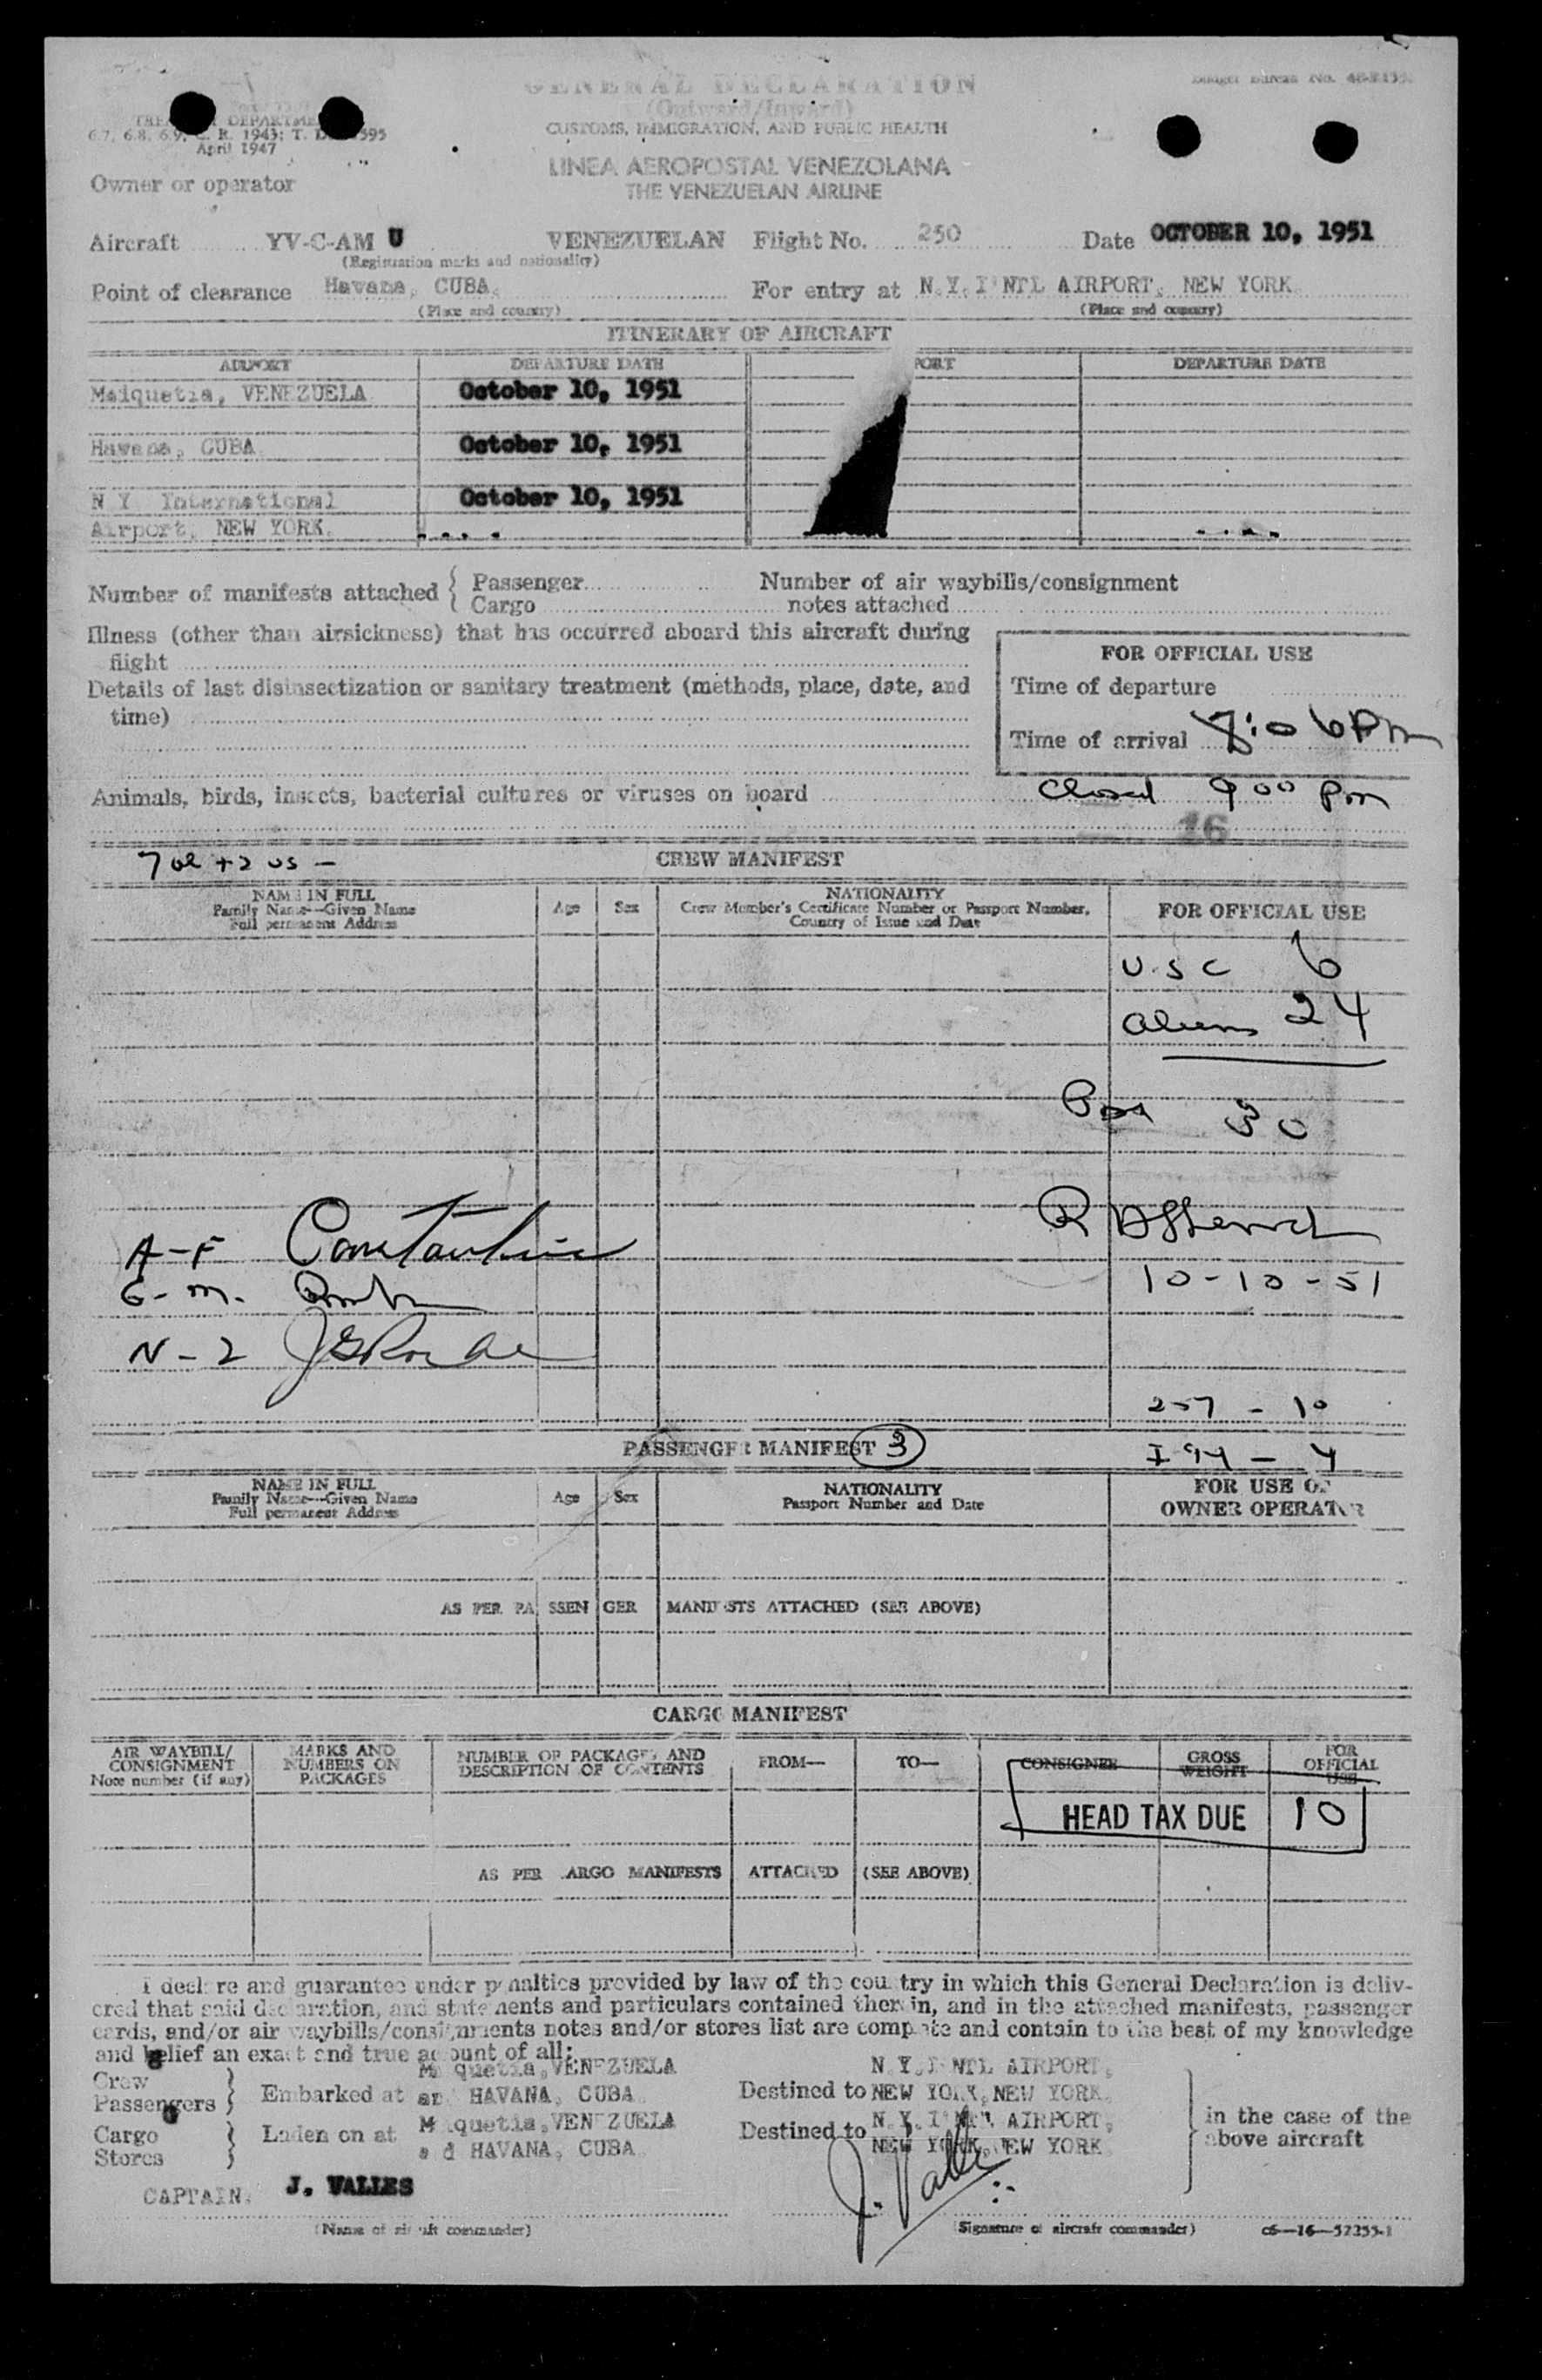 GENERAL DECLARATION
(Outward/Inward)
CUSTOMS, IMMIGRATION, AND PUBLIC HEALTH
TREASURY DEPARTMENT
6.7, 6.8, 6.9, C. R. 1943; T. D. 595
April 1947
LINEA AEROPOSTAL VENEZOLANA
THE VENEZUELAN AIRLINE
Owner or operator
Aircraft YV-C-AM U VENEZUELAN Flight No. 250 Date OCTOBER 10, 1951
(Registration marks and nationality)
Point of clearance Havana, CUBA. For entry at N.Y. I'NTL AIRPORT, NEW YORK.
(Place and country) (Place and country)
ITINERARY OF AIRCRAFT
AIRPORT DEPARTURE DATE PORT DEPARTURE DATE
Maiquetia, VENEZUELA October 10, 1951
Havana, CUBA October 10, 1951
N Y International October 10, 1951
Airport, NEW YORK.
Number of manifests attached { Passenger Number of air waybills/consignment
Cargo notes attached
Illness (other than airsickness) that has occurred aboard this aircraft during
flight
FOR OFFICIAL USE
Details of last disinsectization or sanitary treatment (methods, place, date, and
time)
Time of departure
Time of arrival 8:06 Pm
Animals, birds, insects, bacterial cultures or viruses on board
Closed 9 00 Pm
16
CREW MANIFEST
NAME IN FULL Age Sex NATIONALITY FOR OFFICIAL USE
Family Name--Given Name Crew Member's Certificate Number or Passport Number,
Full permanent Address Country of Issue and Date
U.S C 6
Aliens 24
Pass 30
A-F Constantine
G-M.
10-10-51
N-Z
257 - 10
PASSENGER MANIFEST 3
I 94 - 4
NAME IN FULL Age Sex NATIONALITY FOR USE OF
Family Name--Given Name Passport Number and Date OWNER OPERATOR
Full permanent Address
AS PER PA SSEN GER MANIFESTS ATTACHED (SEE ABOVE)
CARGO MANIFEST
AIR WAYBILL/ MARKS AND NUMBER OF PACKAGES AND FROM— TO— CONSIGNEE GROSS FOR
CONSIGNMENT NUMBERS ON DESCRIPTION OF CONTENTS WEIGHT OFFICIAL
Note number (if any) PACKAGES USE
HEAD TAX DUE 10
AS PER ARGO MANIFESTS ATTACHED (SEE ABOVE)
I declare and guarantee under penalties provided by law of the country in which this General Declaration is deliv-
ered that said declaration, and statements and particulars contained therein, and in the attached manifests, passenger
cards, and/or air waybills/consignments notes and/or stores list are complete and contain to the best of my knowledge
and belief an exact and true account of all:
Crew } Embarked at Maiquetia, VENEZUELA Destined to N.Y. I'NTL AIRPORT,
Passengers and HAVANA, CUBA NEW YORK, NEW YORK.
Cargo } Laden on at Maiquetia, VENEZUELA Destined to N.Y. I'NTL AIRPORT,
Stores and HAVANA, CUBA. NEW YORK, NEW YORK.
in the case of the
above aircraft
CAPTAIN. J. VALLES
J. Valles
(Name of aircraft commander) (Signature of aircraft commander) c6—16—52355-1